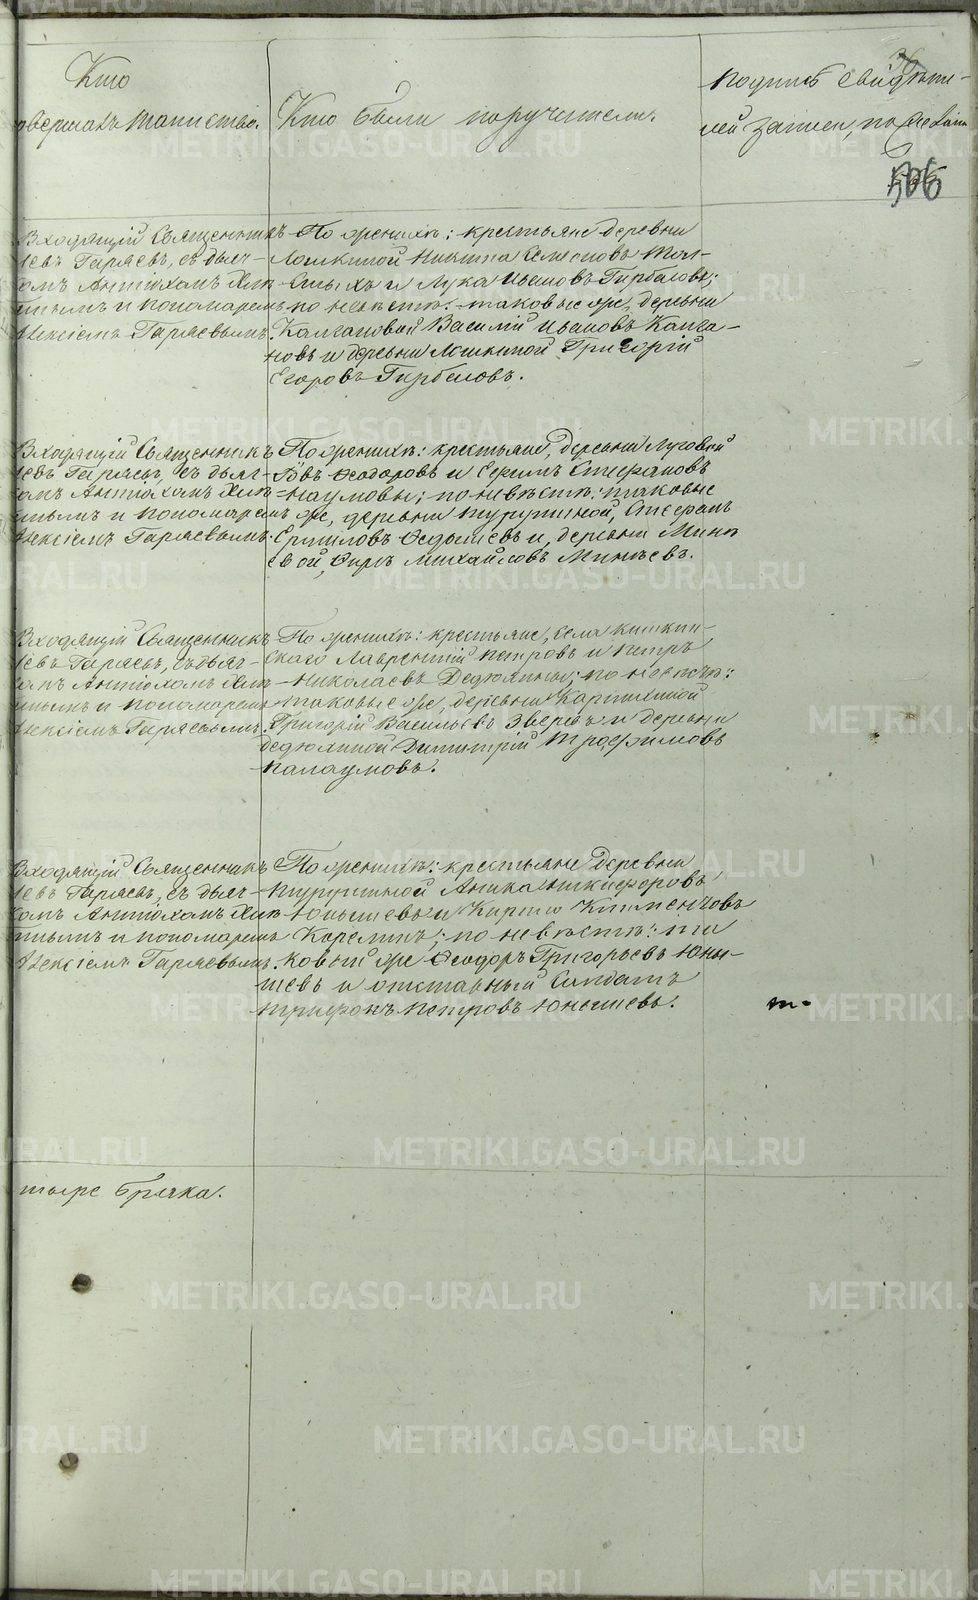 36
Кто
овершалъ таинство.
Кто были поручители.
Подпись свидѣте-
лей записи, по желан
506
Входящій Священникъ
Левъ Гаряевъ, съ дьяч-
комъ Антіохомъ
и пономаремъ
Алексіемъ Гаряевымъ.
По женихѣ: крестьяне деревни
Лошкиной Никита Семеновъ
и Лука Ивановъ Гирбасовы;
по невѣстѣ: таковые же, деревни
Калгановой Василій Ивановъ Калга-
новъ и деревни Лошкиной Григорій
Егоровъ Гирбасовъ.
Входящій Священникъ
Левъ Гаряевъ, съ дьяч-
комъ Антіохомъ
и пономаремъ
Алексіемъ Гаряевымъ.
По женихѣ: крестьяне, деревни Луговой
Ѳеодоровъ и Ефимъ Стефановъ
Наумовы; по невѣстѣ: таковые
же, деревни Турутиной,
Ермиловъ Ѳедосѣевъ и, деревни Мине
евой, Ѳирсъ Михайловъ Минѣевъ.
Входящій Священникъ
Левъ Гаряевъ, съ дьяч-
комъ Антіохомъ
и пономаремъ
Алексіемъ Гаряевымъ.
По женихѣ: крестьяне, села Киткин-
скаго Лаврентій Петровъ и Петръ
Николаевъ Дедюхины; по невѣстѣ:
таковые же, деревни
Григорій Васильевъ Звѣревъ и деревни
Дедюхиной Димитрій Трофимовъ
Палаумовъ.
Входящій Священникъ
Левъ Гаряевъ, съ дьяч-
комъ Антіохомъ
и пономаремъ
Алексіемъ Гаряевымъ.
По женихѣ: крестьяне деревни
Турутиной Аника Никифоровъ
Юнышевъ и Кирило Климентовъ
Корелинъ; по невѣстѣ: та
ковый же Ѳеодоръ Григорьевъ Юны-
шевъ и отставный Солдатъ
Трифонъ Петровъ Юнышевъ.
т-
тыре брака.
METRIKI.GASO-URAL.RU